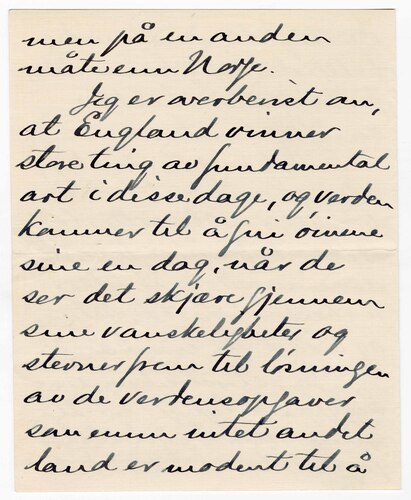 men på en anden
måte enn Norge.
Jeg er overbevist om,
at England vinner
store ting av fundamental
art i disse dage, og verden
kommer til å gni öinene
sine en dag, når de
ser det skjære gjennem
sine vanskeligheter og
stevner frem til løsningen
av de verdensopgaver
som ennu intet andet
land er modent til å